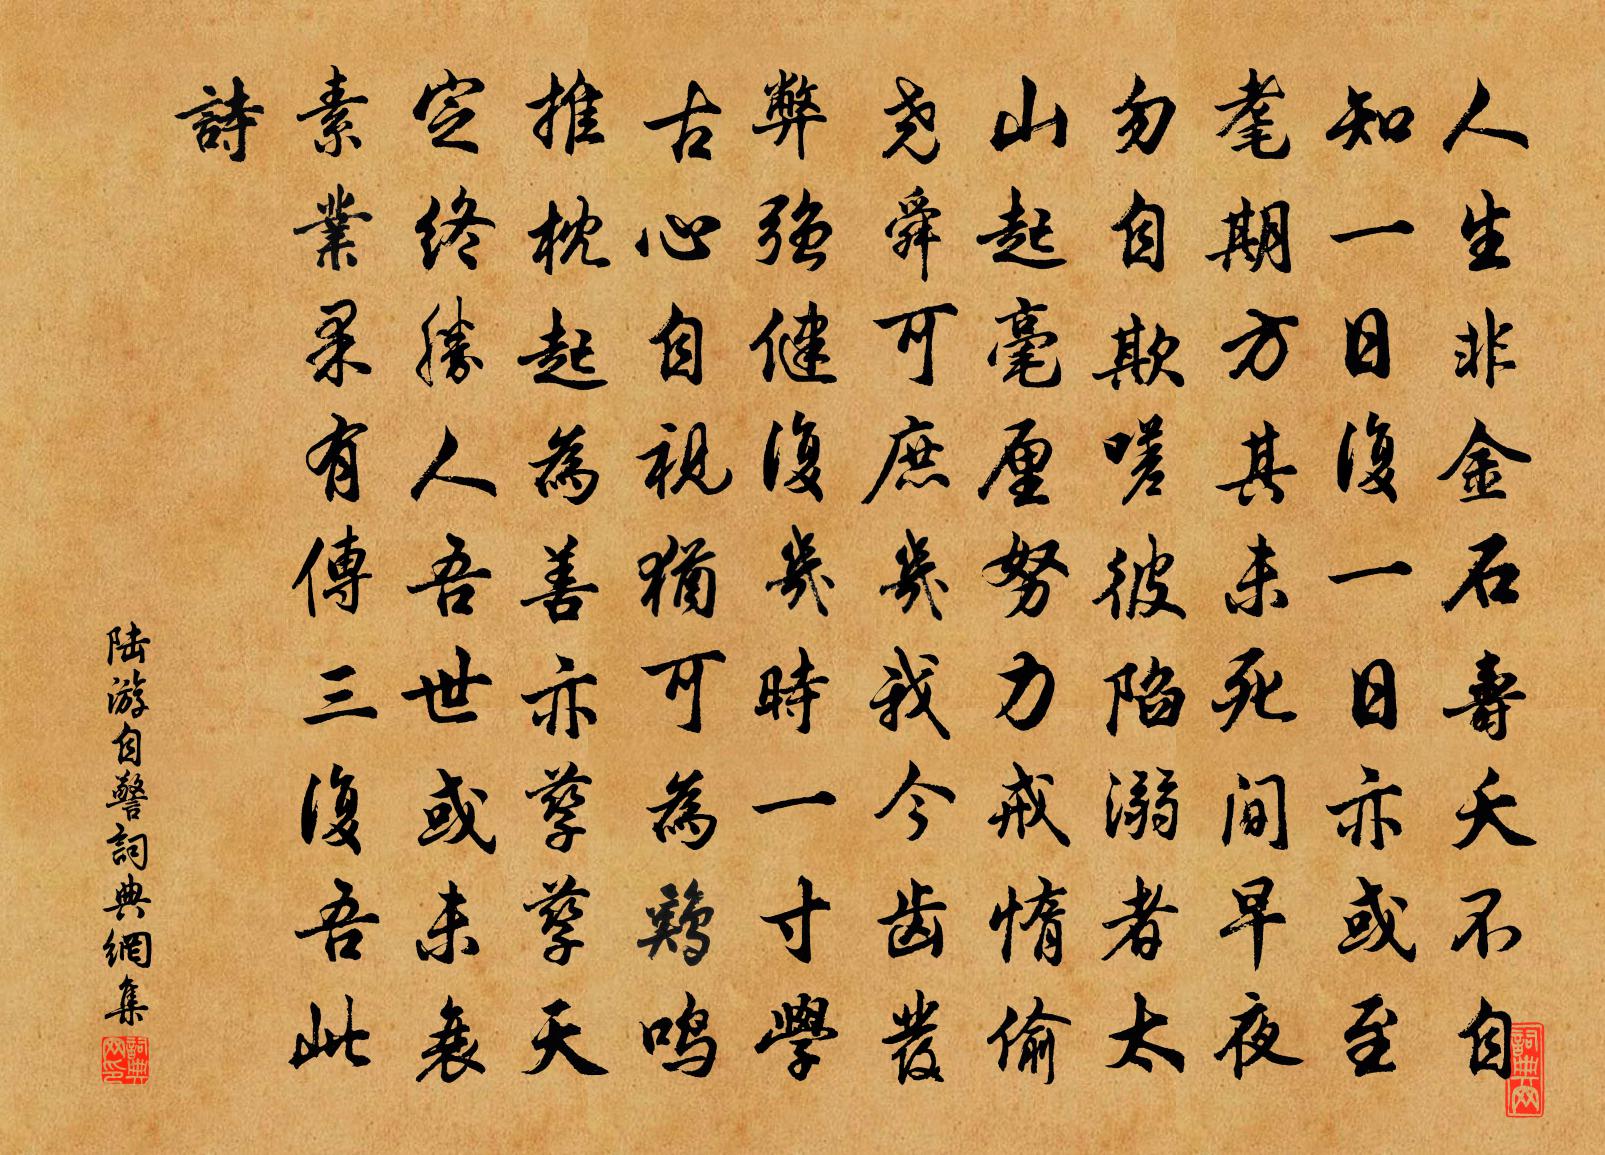 人生非金石壽夭不自
知一日復一日亦或至
耄期方其未死間早夜
勿自欺嗟彼陷溺者太
山起毫厘努力戒惰偷
尧舜可庶幾我今齿發
弊强健復幾時一寸學
古心自視猶可為鷄鸣
推枕起為善亦孳孳天
定终勝人吾世或未衰
素業果有傳三復吾此
詩
陆游自警詞典網集
詞典网
詞典网印